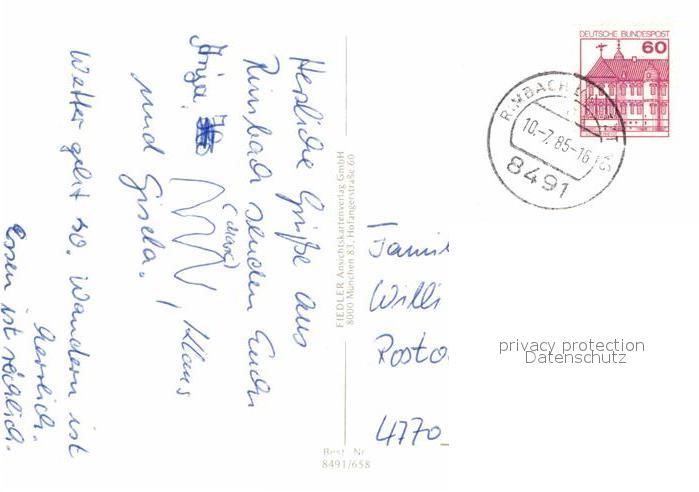 Herzliche Grüße aus
Rimbach senden Euch
Anja, (Max), Klaus
und Gisela.
Wetter geht so. Wandern ist
herrlich.
Essen ist reichlich.
FIEDLER Ansichtskartenverlag GmbH
8000 München 83, Hofangerstraße 60
Best. Nr.
8491/658
DEUTSCHE BUNDESPOST
60
RIMBACH
10.-7.85-16
8491
Famil
Willi
Posto
4770
privacy protection
Datenschutz